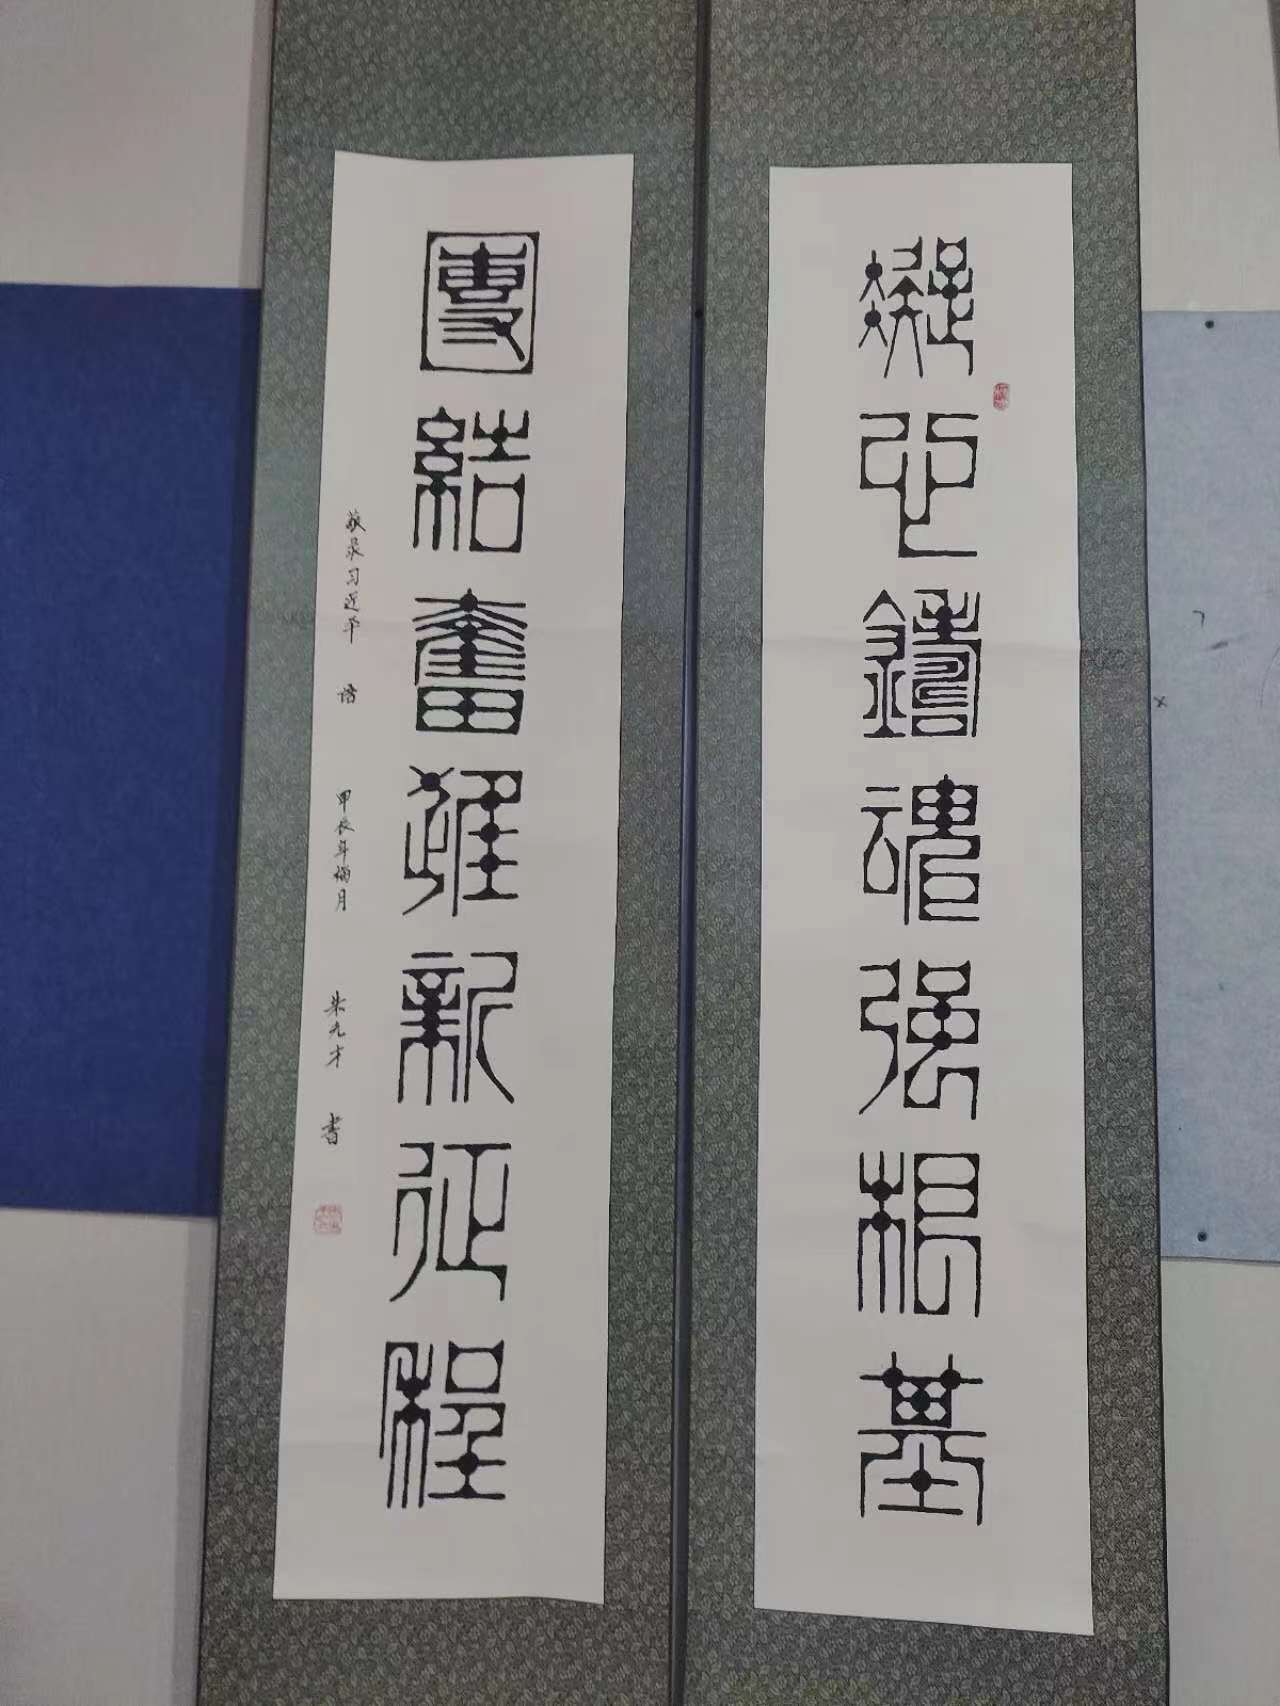 凝心鑄魂強根基
團結奮進新征程
敬录习近平 语 甲辰年 月 朱九才 书